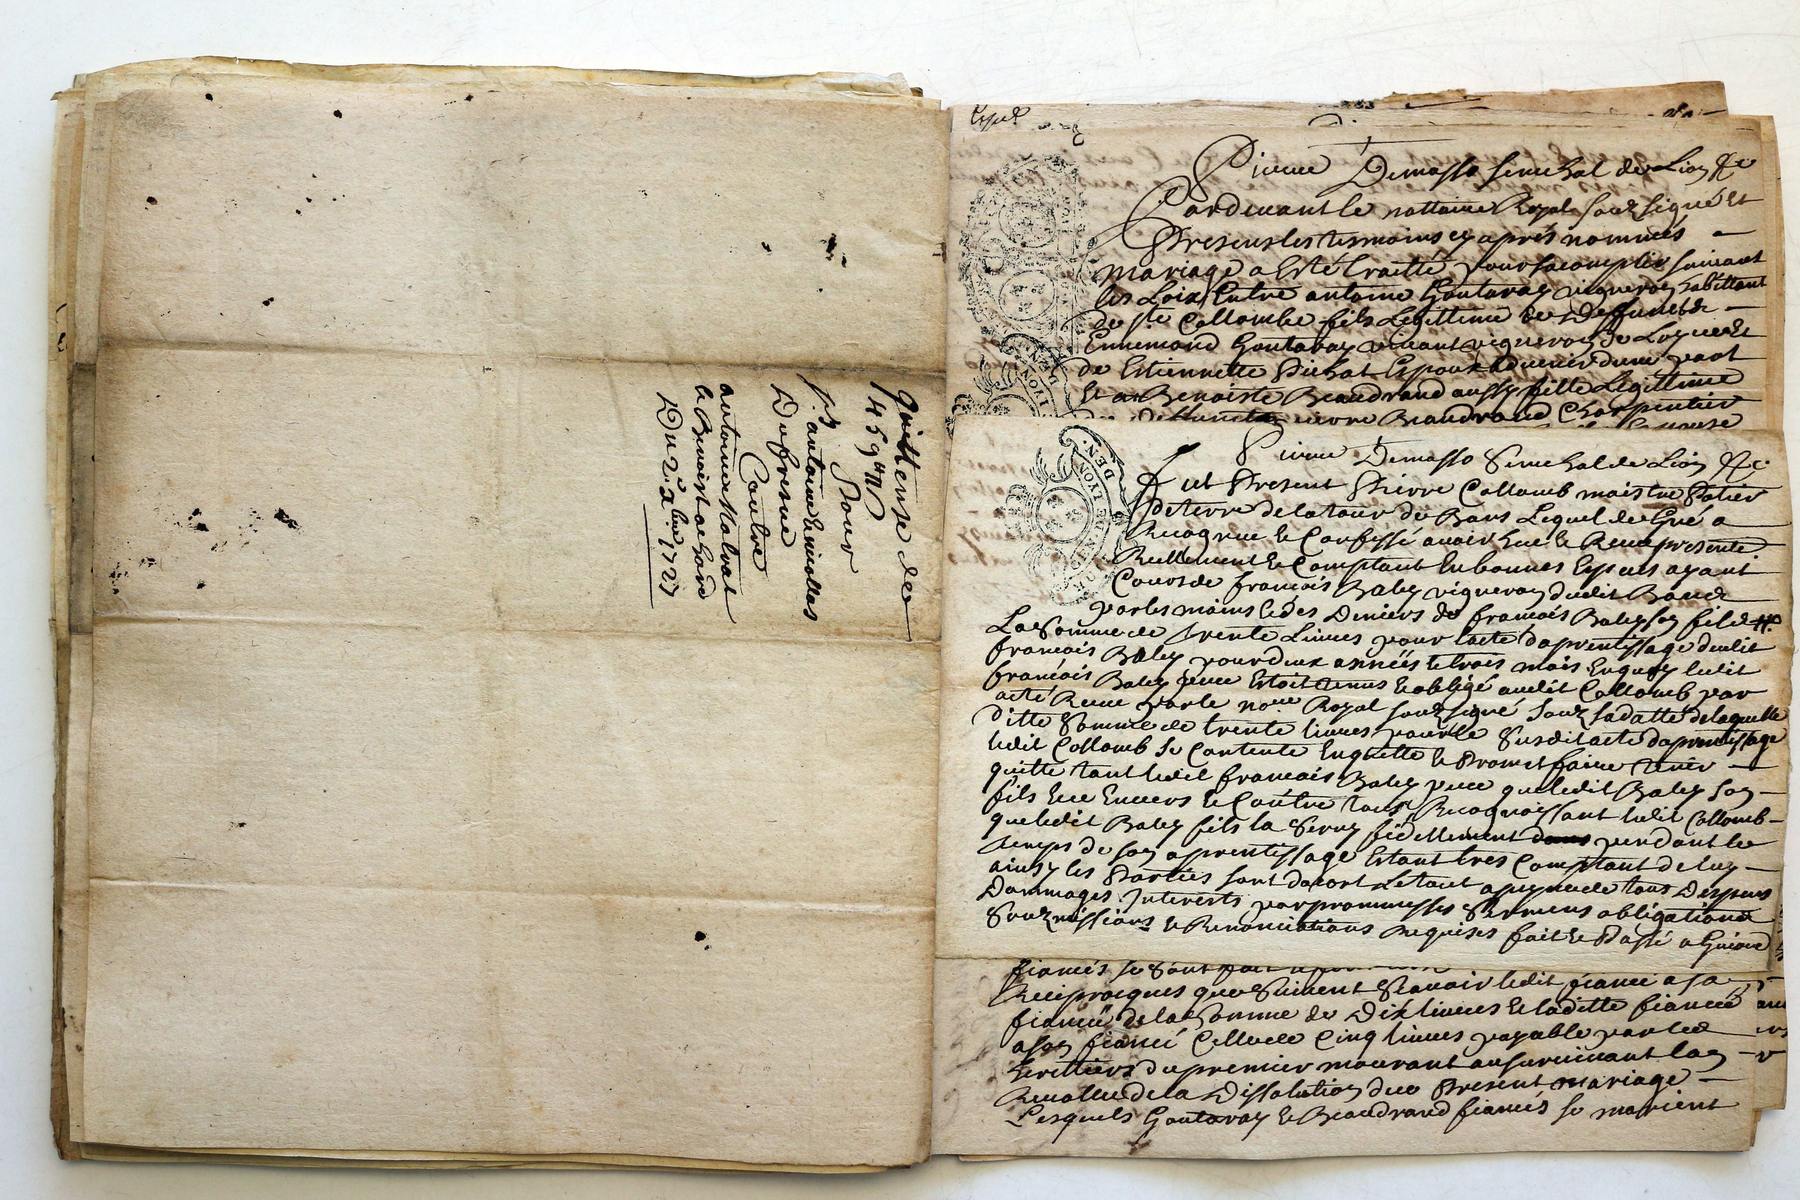 quittense de
459 ₶
Pour
Sr antoine
Dufresne
Contre
antoine Malval
& Benoist
Du 2e 1727
Pierre Demasso Senechal de Lion &c
Pardevant le nottaire Royal souzsigné Et
Presens les tesmoins cy apres nommés
mariage a Esté traitté pour sacomplir suivant
les Loix Entre antoine Goutaray vigneron habittant
de Ste Collombe fils Legittime de Deffunct
Ennemond Goutaray vivant vigneron de
de Estiennette Duhat Espoux advenir dune part
Et a Benoiste Beaudrand aussy fille Legittime
de Deffunct pierre Beaudrand Charpentier
Pierre Demasso Senechal de Lion &c
fut Present Pierre Collomb maistre Potier
de terre de la tour de Bans Lequel de Gré a
Recognue & Confessé avoir heu & Receu presente
Reellement & Comptant En bonnes Especes ayant
Cours de françois Baley vigneron dudit
par les mains & des Deniers de françois Baley son fils
La Somme de trente Livres pour lacte daprentissage dudit
françois Baley pour deux années & trois mois Enquoy ledit
françois Baley pere Estoit tenus & obligé audit Collomb par
acte Receu par le nore Royal souzsigné souz sa datte de laquelle
ditte Somme de trente livres pour le Susdit acte daprentissage
ledit Collomb se Contente Enquitte & Promet faire tenir
quitte tant ledit françois Baley pere que ledit Baley son
fils Envers & Contre tous Recognoissant ledit Collomb
que ledit Baley fils la Servy fidellement pendant le
temps de son aprentissage Estant tres Comptant de luy
ainsy les Parties sont dacort Letout a peyne de tous Despens
Dommages Interests par prommesses Sermens obligations
Souzmissions & Renonciations Requises fait & Passé a
fiancés se Sont fait
Reciproques que Suivent Scavoir ledit fiancé a sa
fiancée de la Somme de Dix livres & laditte fiancée
a son fiancé Celle de Cinq livres payable par les
heritiers du premier mourant au survivant lan
Revollu de la Dissolution du Present mariage
Lesquels Goutaray & Beaudrand fiancés se marient